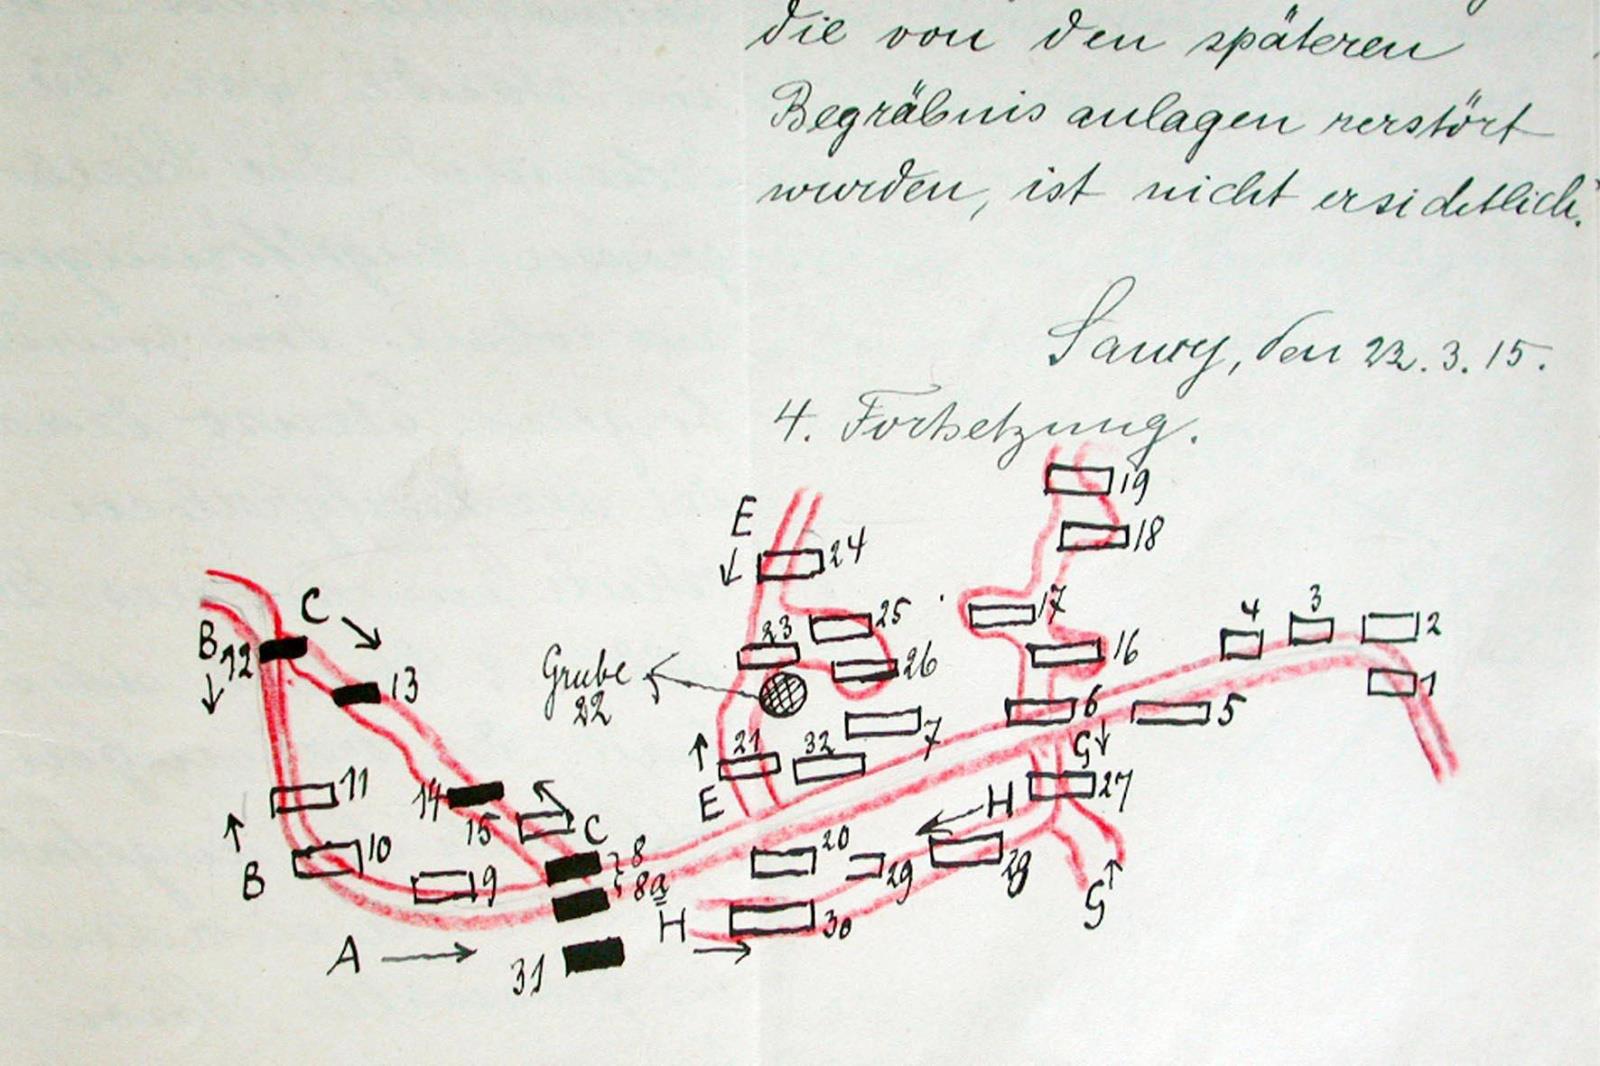 die von den späteren
Begräbnis anlagen zerstört
wurden, ist nicht ersichtlich.
den 22.3.15.
4. Fortsetzung.
19
18
E
24
17
16
25
23
26
Grube
22
C
B 12
13
4
3
2
1
6
5
G
7
21
32
E
H
27
11
14
15
C
10
B
9
8
8a
20
29
28
G
A
H
30
31